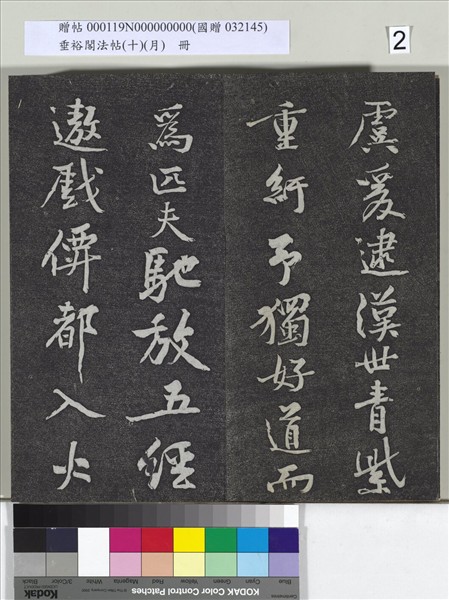 贈帖 000119N000000000(國贈 032145)
垂裕閣法帖(十)(月) 冊
2
虞爰逮漢世青紫
重紆予獨好道而
爲匹夫馳放五經
遨戲僊都入火
Blue Cyan Green Yellow Red Magenta White 3/Color Black
Kodak
KODAK Color Control Patches